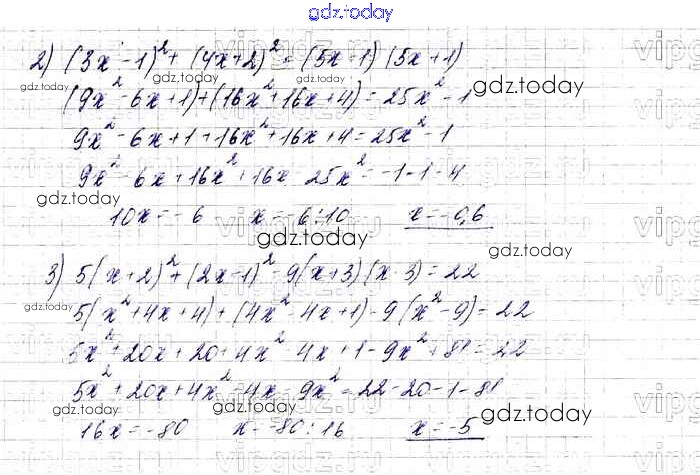 gdz.today
2) (3x-1)² + (4x+2)² = (5x-1)(5x+1)
gdz.today
(9x²-6x+1)+(16x²+16x+4)=25x²-1
gdz.today
9x²-6x+1+16x²+16x+4=25x²-1
9x²-6x+16x²+16x-25x²=-1-1-4
gdz.today
10x=-6 x=-6:10 x=-0,6
gdz.today
3) 5(x+2)²+(2x-1)²-9(x+3)(x-3)=22
5(x²+4x+4)+(4x²-4x+1)-9(x²-9)=22
5x²+20x+20+4x²-4x+1-9x²+81=22
5x²+20x+4x²-4x-9x²=22-20-1-81
gdz.today
gdz.today
gdz.today
16x=-80 x=-80:16 x=-5